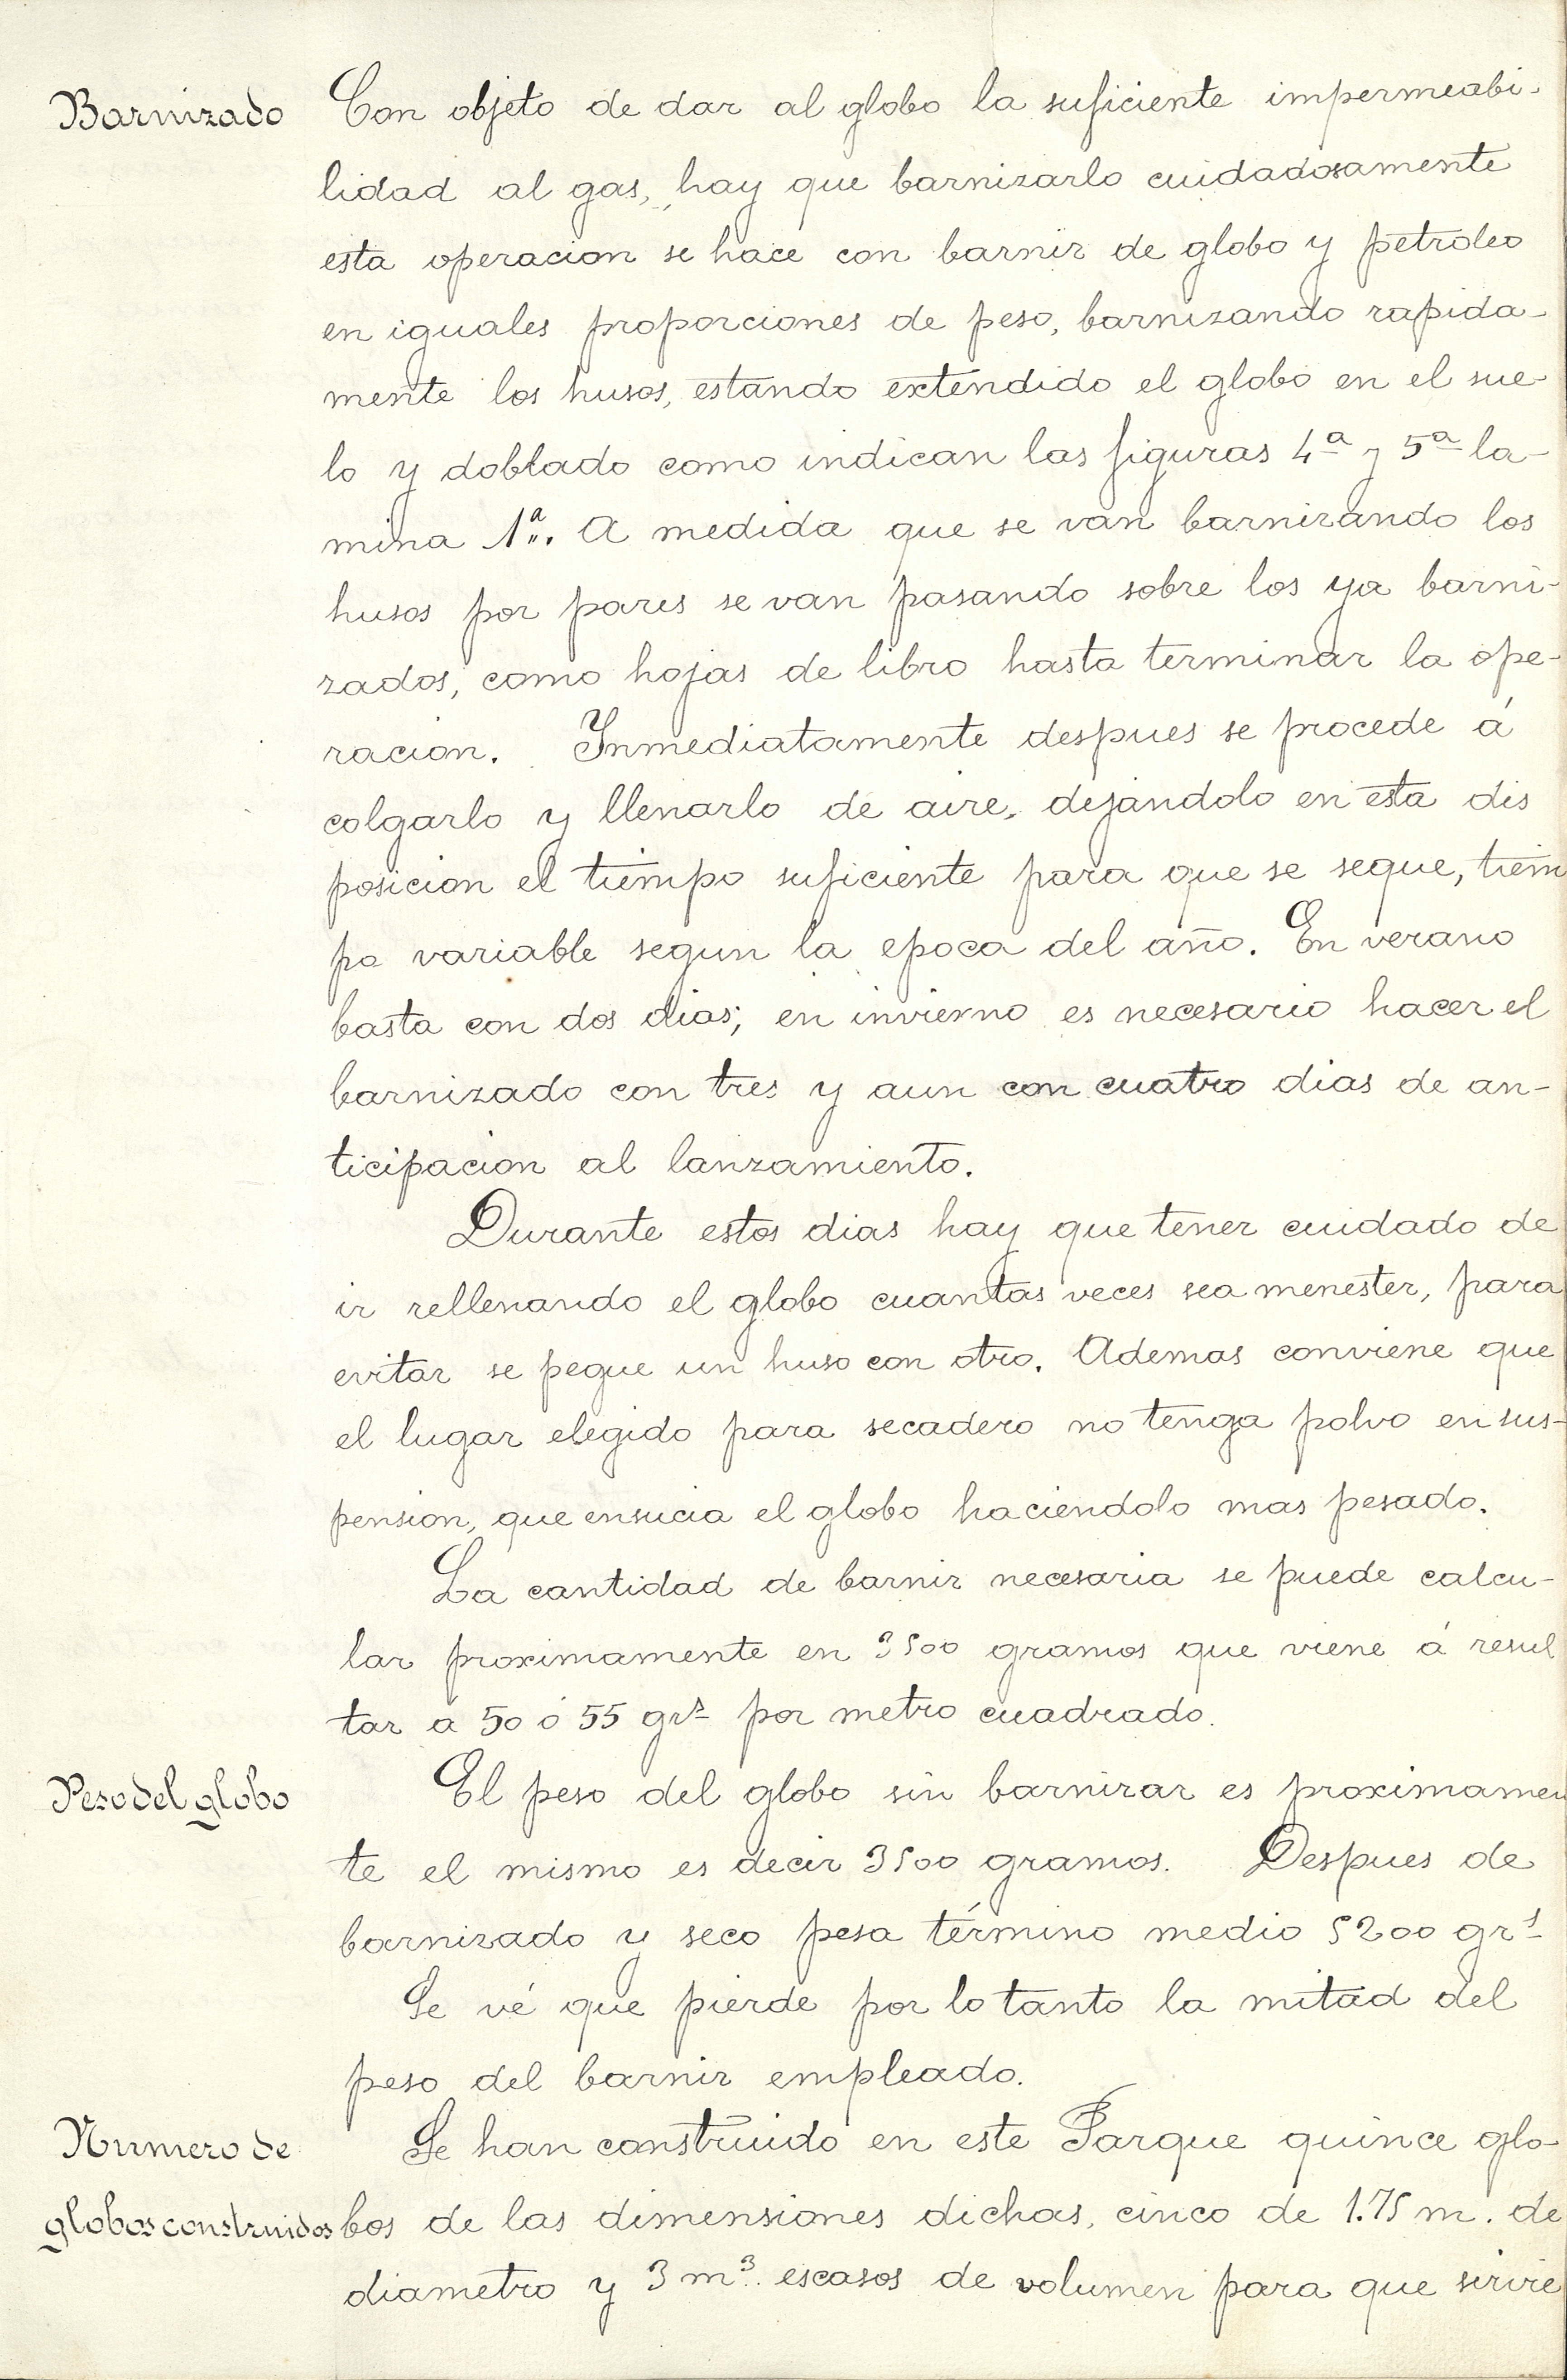 Barnizado
Con objeto de dar al globo la suficiente impermeabi-
lidad al gas, hay que barnizarlo cuidadosamente
esta operacion se hace con barniz de globo y petroleo
en iguales proporciones de peso, barnizando rapida-
mente los husos, estando extendido el globo en el sue-
lo y doblado como indican las figuras 4ª y 5ª la-
mina 1ª. A medida que se van barnizando los
husos por pares se van pasando sobre los ya barni-
zados, como hojas de libro hasta terminar la ope-
racion. Inmediatamente despues se procede á
colgarlo y llenarlo de aire, dejandolo en esta dis
posicion el tiempo suficiente para que se seque, tiem
po variable segun la epoca del año. En verano
basta con dos dias; en invierno es necesario hacer el
barnizado con tres y aun con cuatro dias de an-
ticipacion al lanzamiento.
Durante estos dias hay que tener cuidado de
ir rellenando el globo cuantas veces sea menester, para
evitar se pegue un huso con otro. Ademas conviene que
el lugar elegido para secadero no tenga polvo en sus-
pension, que ensucia el globo haciendolo mas pesado.
La cantidad de barniz necesaria se puede calcu-
lar proximamente en 3500 gramos que viene á resul
tar á 50 ó 55 grs por metro cuadrado.
Peso del globo
El peso del globo sin barnizar es proximamen
te el mismo es decir 3500 gramos. Despues de
barnizado y seco pesa término medio 5200 grs
Se vé que pierde por lo tanto la mitad del
peso del barniz empleado.
Numero de
globos construidos
Se han construido en este Parque quince glo-
bos de las dimensiones dichas, cinco de 1.75 m. de
diametro y 3 m³. escasos de volumen para que sirvie